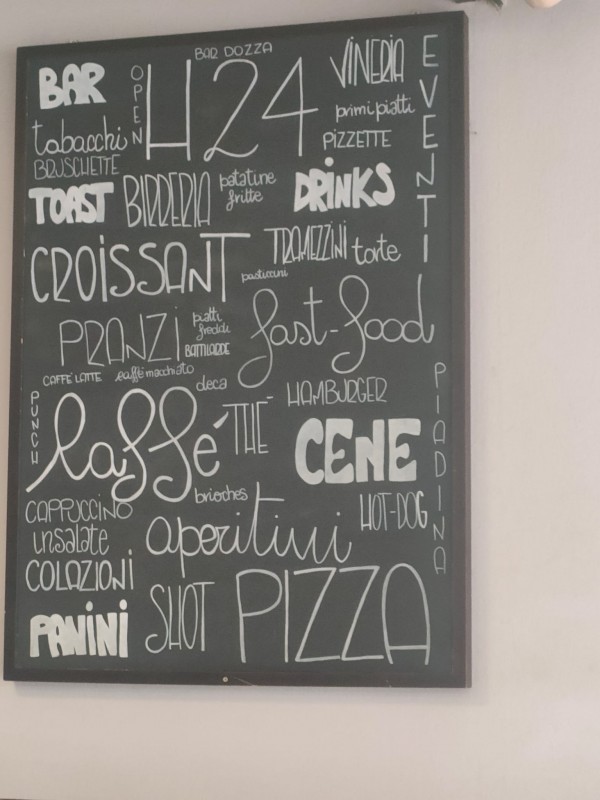 BAR DOZZA
BAR
OPEN
H24
VINERIA
EVENTI
primi piatti
tabacchi
PIZZETTE
BRUSCHETTE
TOAST
BIRRERIA
patatine
fritte
DRINKS
CROISSANT
TRAMEZZINI
torte
pasticcini
fast-food
PRANZI
piatti
freddi
BATTILARDE
CAFFE' LATTE
caffè macchiato
deca
HAMBURGER
PIADINA
PUNCH
Caffé
THE'
CENE
brioches
CAPPUCCINO
HOT-DOG
insalate
aperitivi
COLAZIONI
PANINI
SHOT
PIZZA